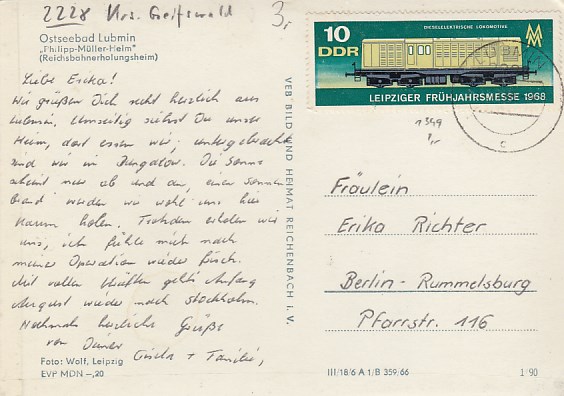 2228 Krs. Greifswald
3,-
Ostseebad Lubmin
„Philipp-Müller-Heim"
(Reichsbahnerholungsheim)
Liebe Erika!
Wir grüßen Dich recht herzlich aus
Lubmin. Umseitig siehst Du unser
Heim, dort essen wir, untergebracht
sind wir in Bungalow. Die Sonne
scheint nur ab und an, einen Sonnen
brand werden wir wohl uns hier
kaum holen. Trotzdem erholen wir
uns, ich fühle mich nach
meiner Operation wieder frisch.
Mit vollen Kräften gehts Anfang
August wieder nach Stockholm.
Nochmals herzliche Grüße
von Deiner
Gisela + Familie,
Foto: Wolf, Leipzig
EVP MDN -,20
VEB BILD UND HEIMAT REICHENBACH i. V.
10
DDR
DIESELELEKTRISCHE LOKOMOTIVE
MM
LEIPZIGER FRÜHJAHRSMESSE 1968
1349
1,-
c
Fräulein
Erika Richter
Berlin-Rummelsburg
Pfarrstr. 116
III/18/6 A 1/B 359/66
1 90